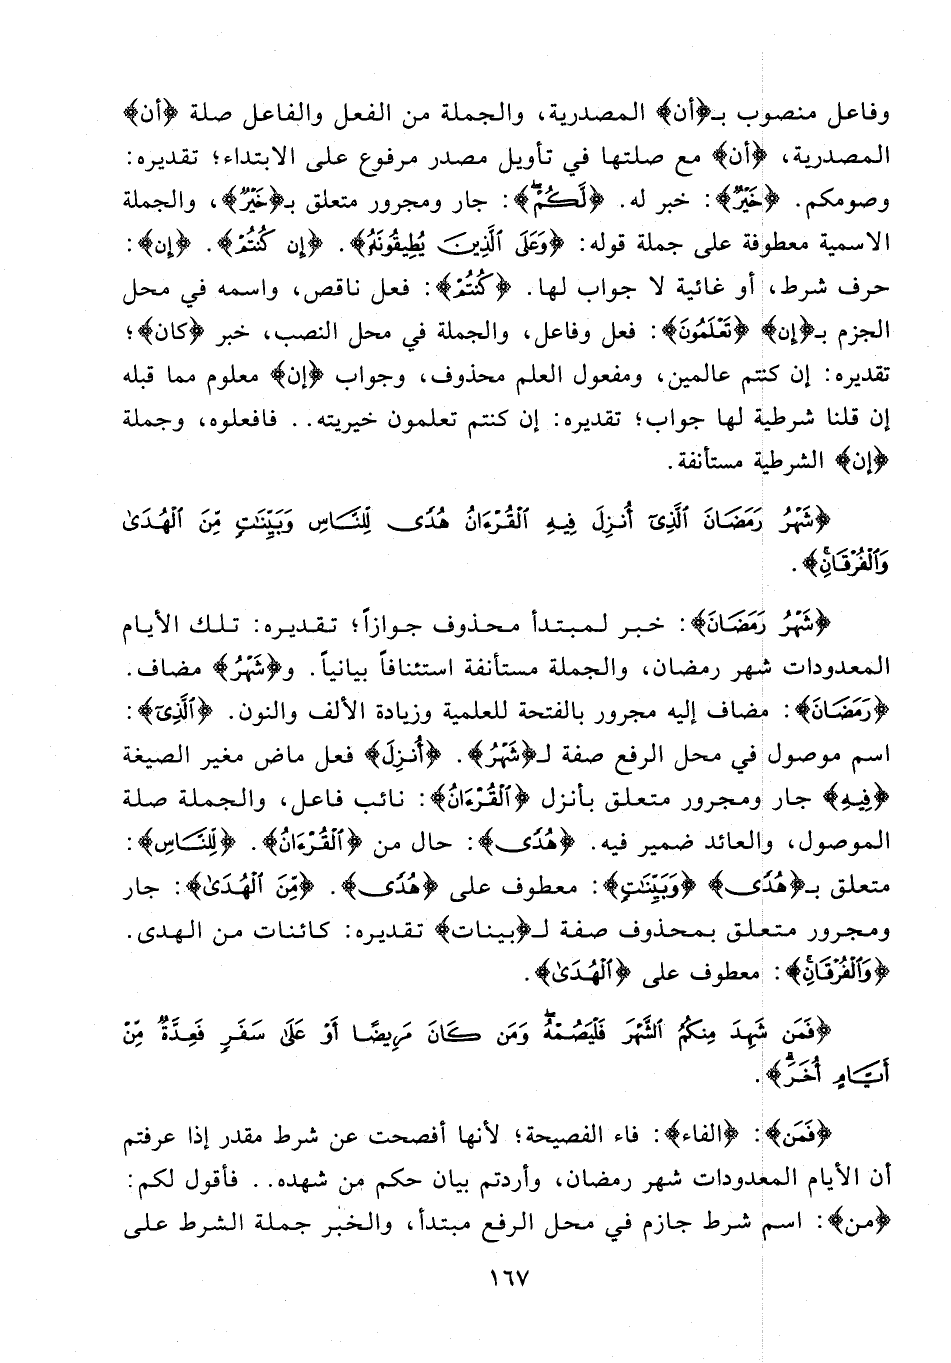 وفاعل منصوب بـ﴿أن﴾ المصدرية، والجملة من الفعل والفاعل صلة ﴿أن﴾
المصدرية، ﴿أن﴾ مع صلتها في تأويل مصدر مرفوع على الابتداء؛ تقديره:
وصومكم. ﴿خَيْرٌ﴾: خبر له. ﴿لَّكُمْ﴾: جار ومجرور متعلق بـ﴿خَيْرٌ﴾، والجملة
الاسمية معطوفة على جملة قوله: ﴿وَعَلَى ٱلَّذِينَ يُطِيقُونَهُۥ﴾. ﴿إِن كُنتُمْ﴾. ﴿إن﴾:
حرف شرط، أو غائية لا جواب لها. ﴿كُنتُمْ﴾: فعل ناقص، واسمه في محل
الجزم بـ﴿إن﴾ ﴿تَعْلَمُونَ﴾: فعل وفاعل، والجملة في محل النصب، خبر ﴿كان﴾؛
تقديره: إن كنتم عالمين، ومفعول العلم محذوف، وجواب ﴿إن﴾ معلوم مما قبله
إن قلنا شرطية لها جواب؛ تقديره: إن كنتم تعلمون خيريته.. فافعلوه، وجملة
﴿إن﴾ الشرطية مستأنفة.
﴿شَهْرُ رَمَضَانَ ٱلَّذِىٓ أُنزِلَ فِيهِ ٱلْقُرْءَانُ هُدًى لِّلنَّاسِ وَبَيِّنَٰتٍ مِّنَ ٱلْهُدَىٰ
وَٱلْفُرْقَانِۚ﴾.
﴿شَهْرُ رَمَضَانَ﴾: خبر لمبتدأ محذوف جوازاً؛ تقديره: تلك الأيام
المعدودات شهر رمضان، والجملة مستأنفة استئنافاً بيانياً. و﴿شَهْرُ﴾ مضاف.
﴿رَمَضَانَ﴾: مضاف إليه مجرور بالفتحة للعلمية وزيادة الألف والنون. ﴿ٱلَّذِىٓ﴾:
اسم موصول في محل الرفع صفة لـ﴿شَهْرُ﴾. ﴿أُنزِلَ﴾ فعل ماض مغير الصيغة
﴿فِيهِ﴾ جار ومجرور متعلق بأنزل ﴿ٱلْقُرْءَانُ﴾: نائب فاعل، والجملة صلة
الموصول، والعائد ضمير فيه. ﴿هُدًى﴾: حال من ﴿ٱلْقُرْءَانُ﴾. ﴿لِّلنَّاسِ﴾:
متعلق بـ﴿هُدًى﴾ ﴿وَبَيِّنَٰتٍ﴾: معطوف على ﴿هُدًى﴾. ﴿مِّنَ ٱلْهُدَىٰ﴾: جار
ومجرور متعلق بمحذوف صفة لـ﴿بينات﴾ تقديره: كائنات من الهدى.
﴿وَٱلْفُرْقَانِۚ﴾: معطوف على ﴿ٱلْهُدَىٰ﴾.
﴿فَمَن شَهِدَ مِنكُمُ ٱلشَّهْرَ فَلْيَصُمْهُۖ وَمَن كَانَ مَرِيضًا أَوْ عَلَىٰ سَفَرٍ فَعِدَّةٌ مِّنْ
أَيَّامٍ أُخَرَۗ﴾.
﴿فَمَن﴾: ﴿الفاء﴾: فاء الفصيحة؛ لأنها أفصحت عن شرط مقدر إذا عرفتم
أن الأيام المعدودات شهر رمضان، وأردتم بيان حكم من شهده.. فأقول لكم:
﴿من﴾: اسم شرط جازم في محل الرفع مبتدأ، والخبر جملة الشرط على
١٦٧